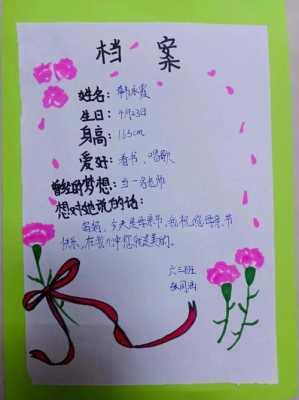 档案
姓名:韩冰霞
生日:9月23日
身高:165cm
爱好:看书、唱歌
曾经的梦想:当一名老师
想对她说的话:
妈妈,今天是母亲节,我祝您母亲节
快乐,在我心中您就是美的。
六三班
张